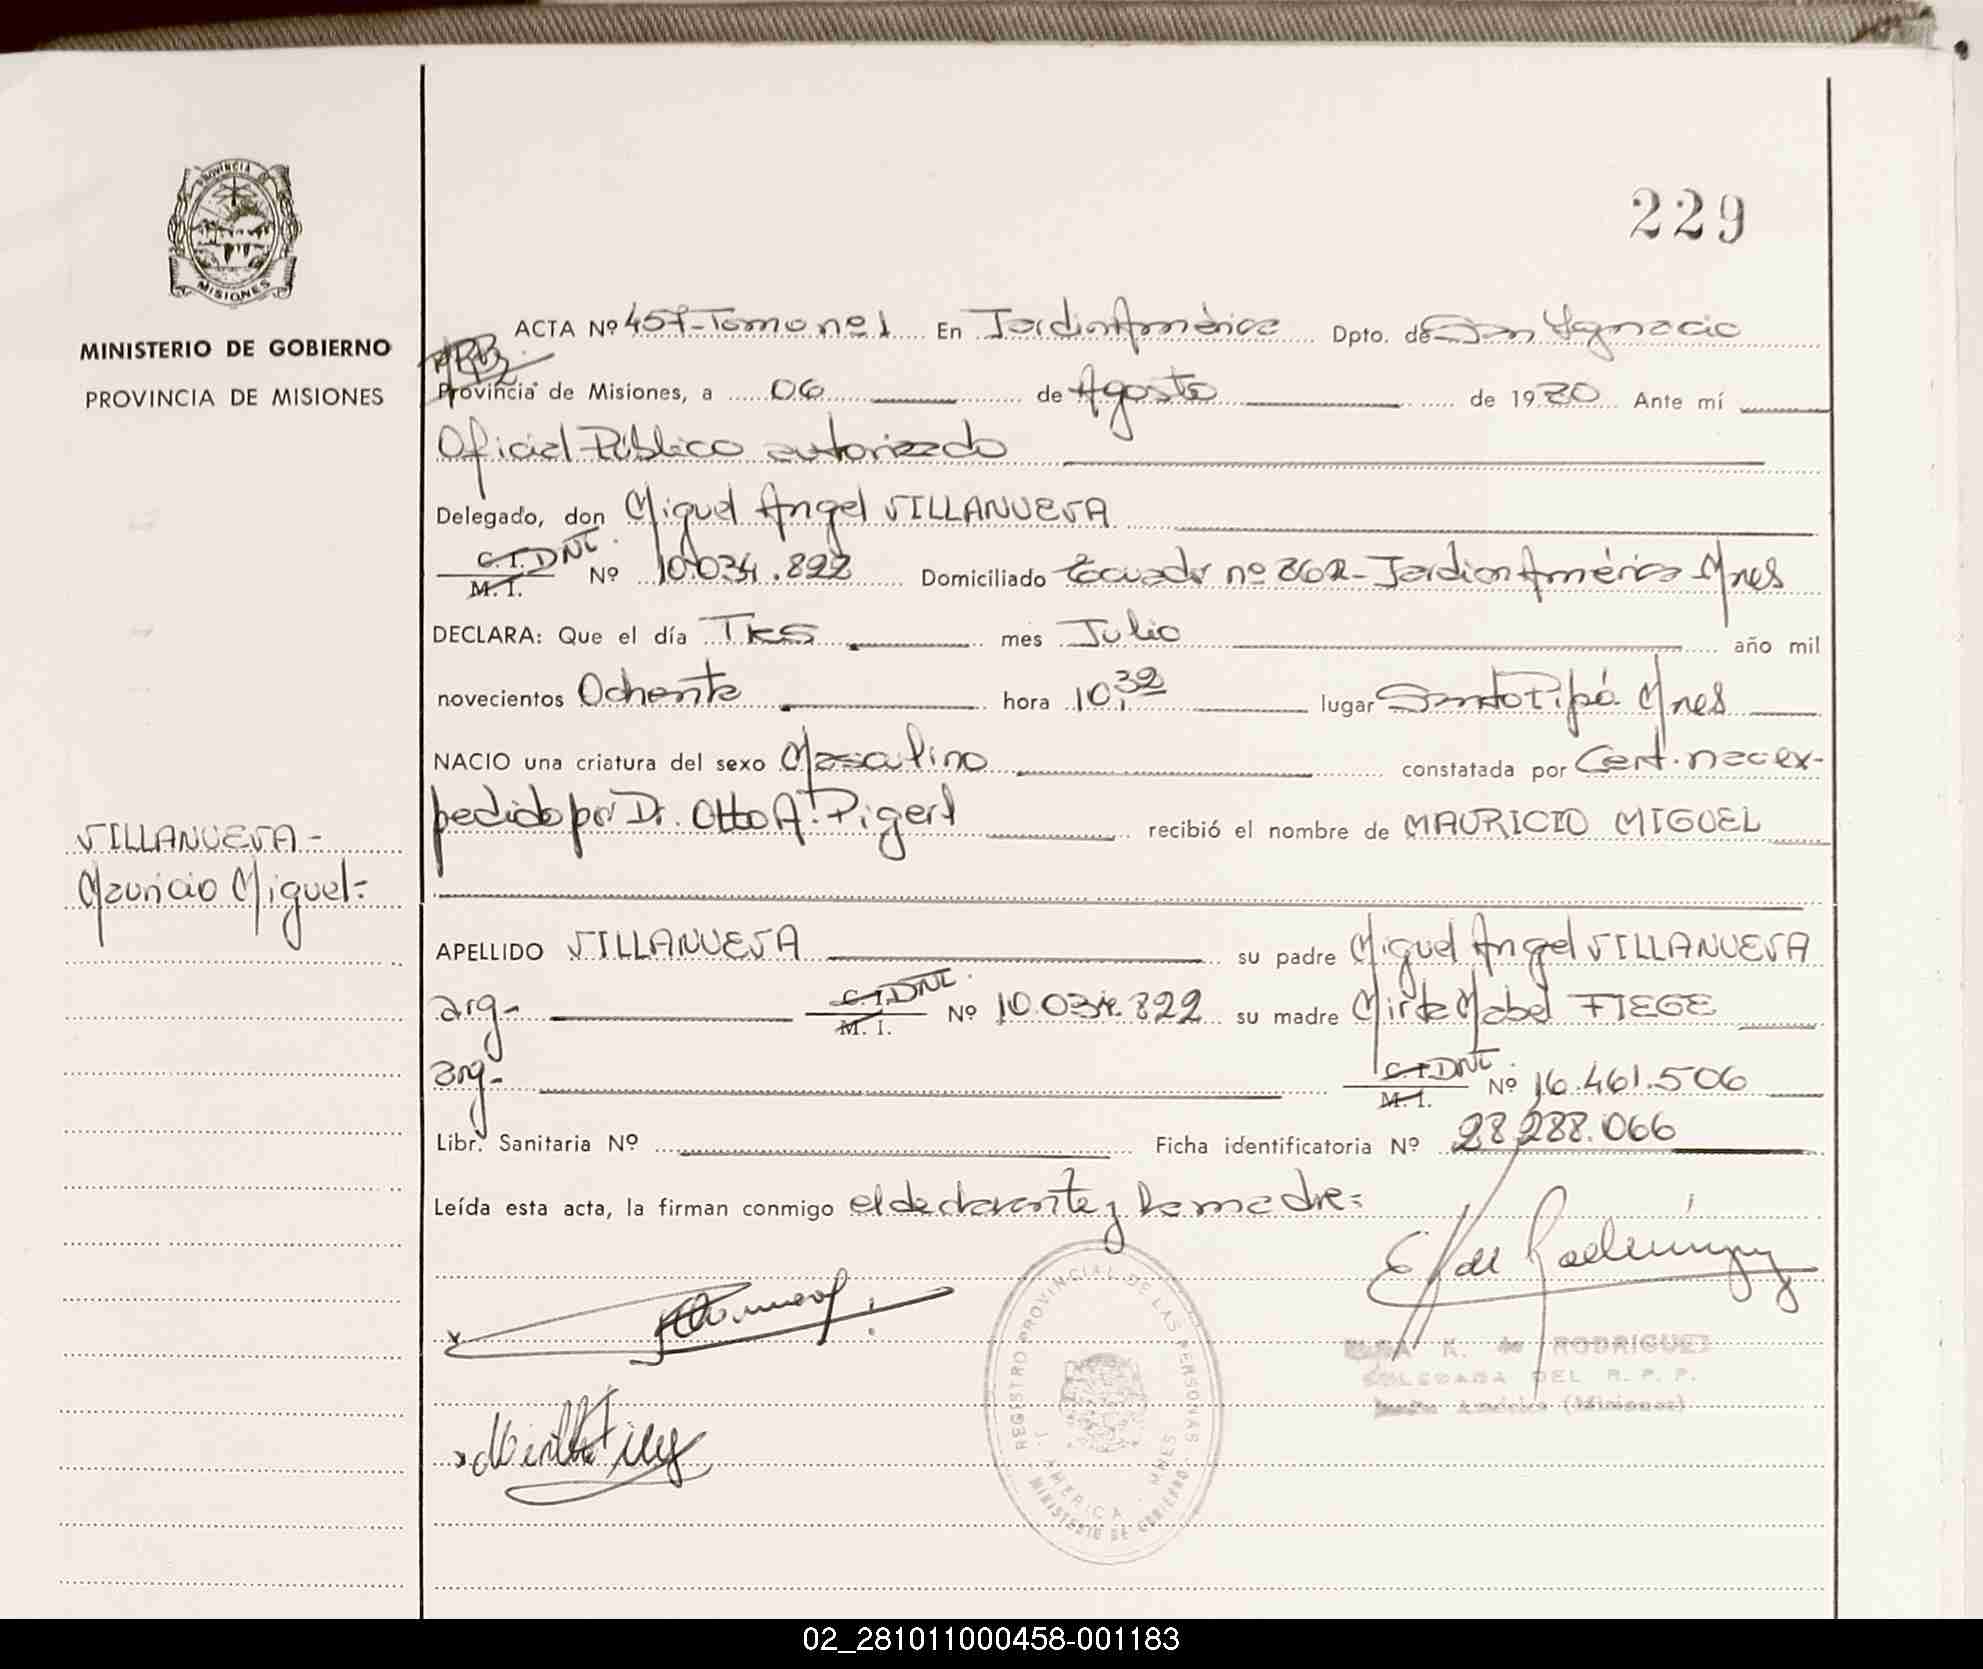 229
PROVINCIA
MISIONES
MINISTERIO DE GOBIERNO
PROVINCIA DE MISIONES
ACTA Nº 457-Tomo nº1 En Jardin América Dpto. de San Ygnacio
Provincia de Misiones, a 06 de Agosto de 1980 Ante mí
Oficial Público autorizado
Delegado, don Miguel Angel VILLANUEVA
C.I. DNI.
M. I. Nº 10.034.822 Domiciliado Ecuador nº 862- Jardion América Mnes
DECLARA: Que el día Tres mes Julio año mil
novecientos Ochenta hora 10,32 lugar Santo Pipó Mnes
NACIO una criatura del sexo Masculino constatada por Cert. nac ex-
pedido por Dr. Otto A. Pigerl recibió el nombre de MAURICIO MIGUEL
VILLANUEVA-
Mauricio Miguel=
APELLIDO VILLANUEVA su padre Miguel Angel VILLANUEVA
arg- C.I. DNI. M. I. Nº 10.034.822 su madre Mirta Mabel FIEGE
arg- C.I. DNI. M. I. Nº 16.461.506
Libr. Sanitaria Nº Ficha identificatoria Nº 28.288.066
Leída esta acta, la firman conmigo el declarante y la madre=
REGISTRO PROVINCIAL DE LAS PERSONAS
J. AMERICA - MNES
MINISTERIO DE GOBIERNO
ELSA K. de RODRIGUEZ
DELEGADA DEL R. P. P.
Jardín América (Misiones)
02_281011000458-001183